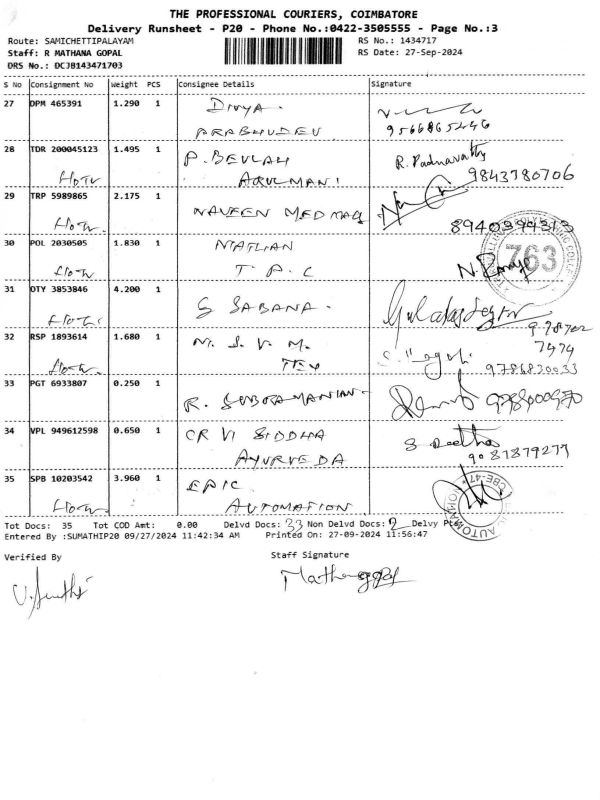 THE PROFESSIONAL COURIERS, COIMBATORE
Delivery Runsheet - P20 - Phone No.:0422-3505555 - Page No.:3
Route: SAMICHETTIPALAYAM RS No.: 1434717
Staff: R MATHANA GOPAL RS Date: 27-Sep-2024
DRS No.: DCJB143471703
S No Consignment No Weight PCS Consignee Details Signature
27 DPM 465391 1.290 1 DIVYA.
PRABHUDEV 9566865246
28 TDR 200045123 1.495 1 P. BEULAH R. Padmavathy
ARULMANI 9843780706
29 TRP 5989865 2.175 1 NAVEEN MEDMALL
8940399313
30 POL 2030505 1.830 1
T. P. C
763
31 OTY 3853846 4.200 1 S SABANA.
32 RSP 1893614 1.680 1 M. S. V M. 7474
TEX 9786830033
33 PGT 6933807 0.250 1 R. SUBRAMANIAN
34 VPL 949612598 0.650 1 OR VI SIDDHA
AYURVEDA 9081879277
35 SPB 10203542 3.960 1 EPIC
AUTOMATION
Tot Docs: 35 Tot COD Amt: 0.00 Delvd Docs: 33 Non Delvd Docs: 2 Delvy
Entered By :SUMATHIP20 09/27/2024 11:42:34 AM Printed On: 27-09-2024 11:56:47
Verified By Staff Signature
Mathanagopal